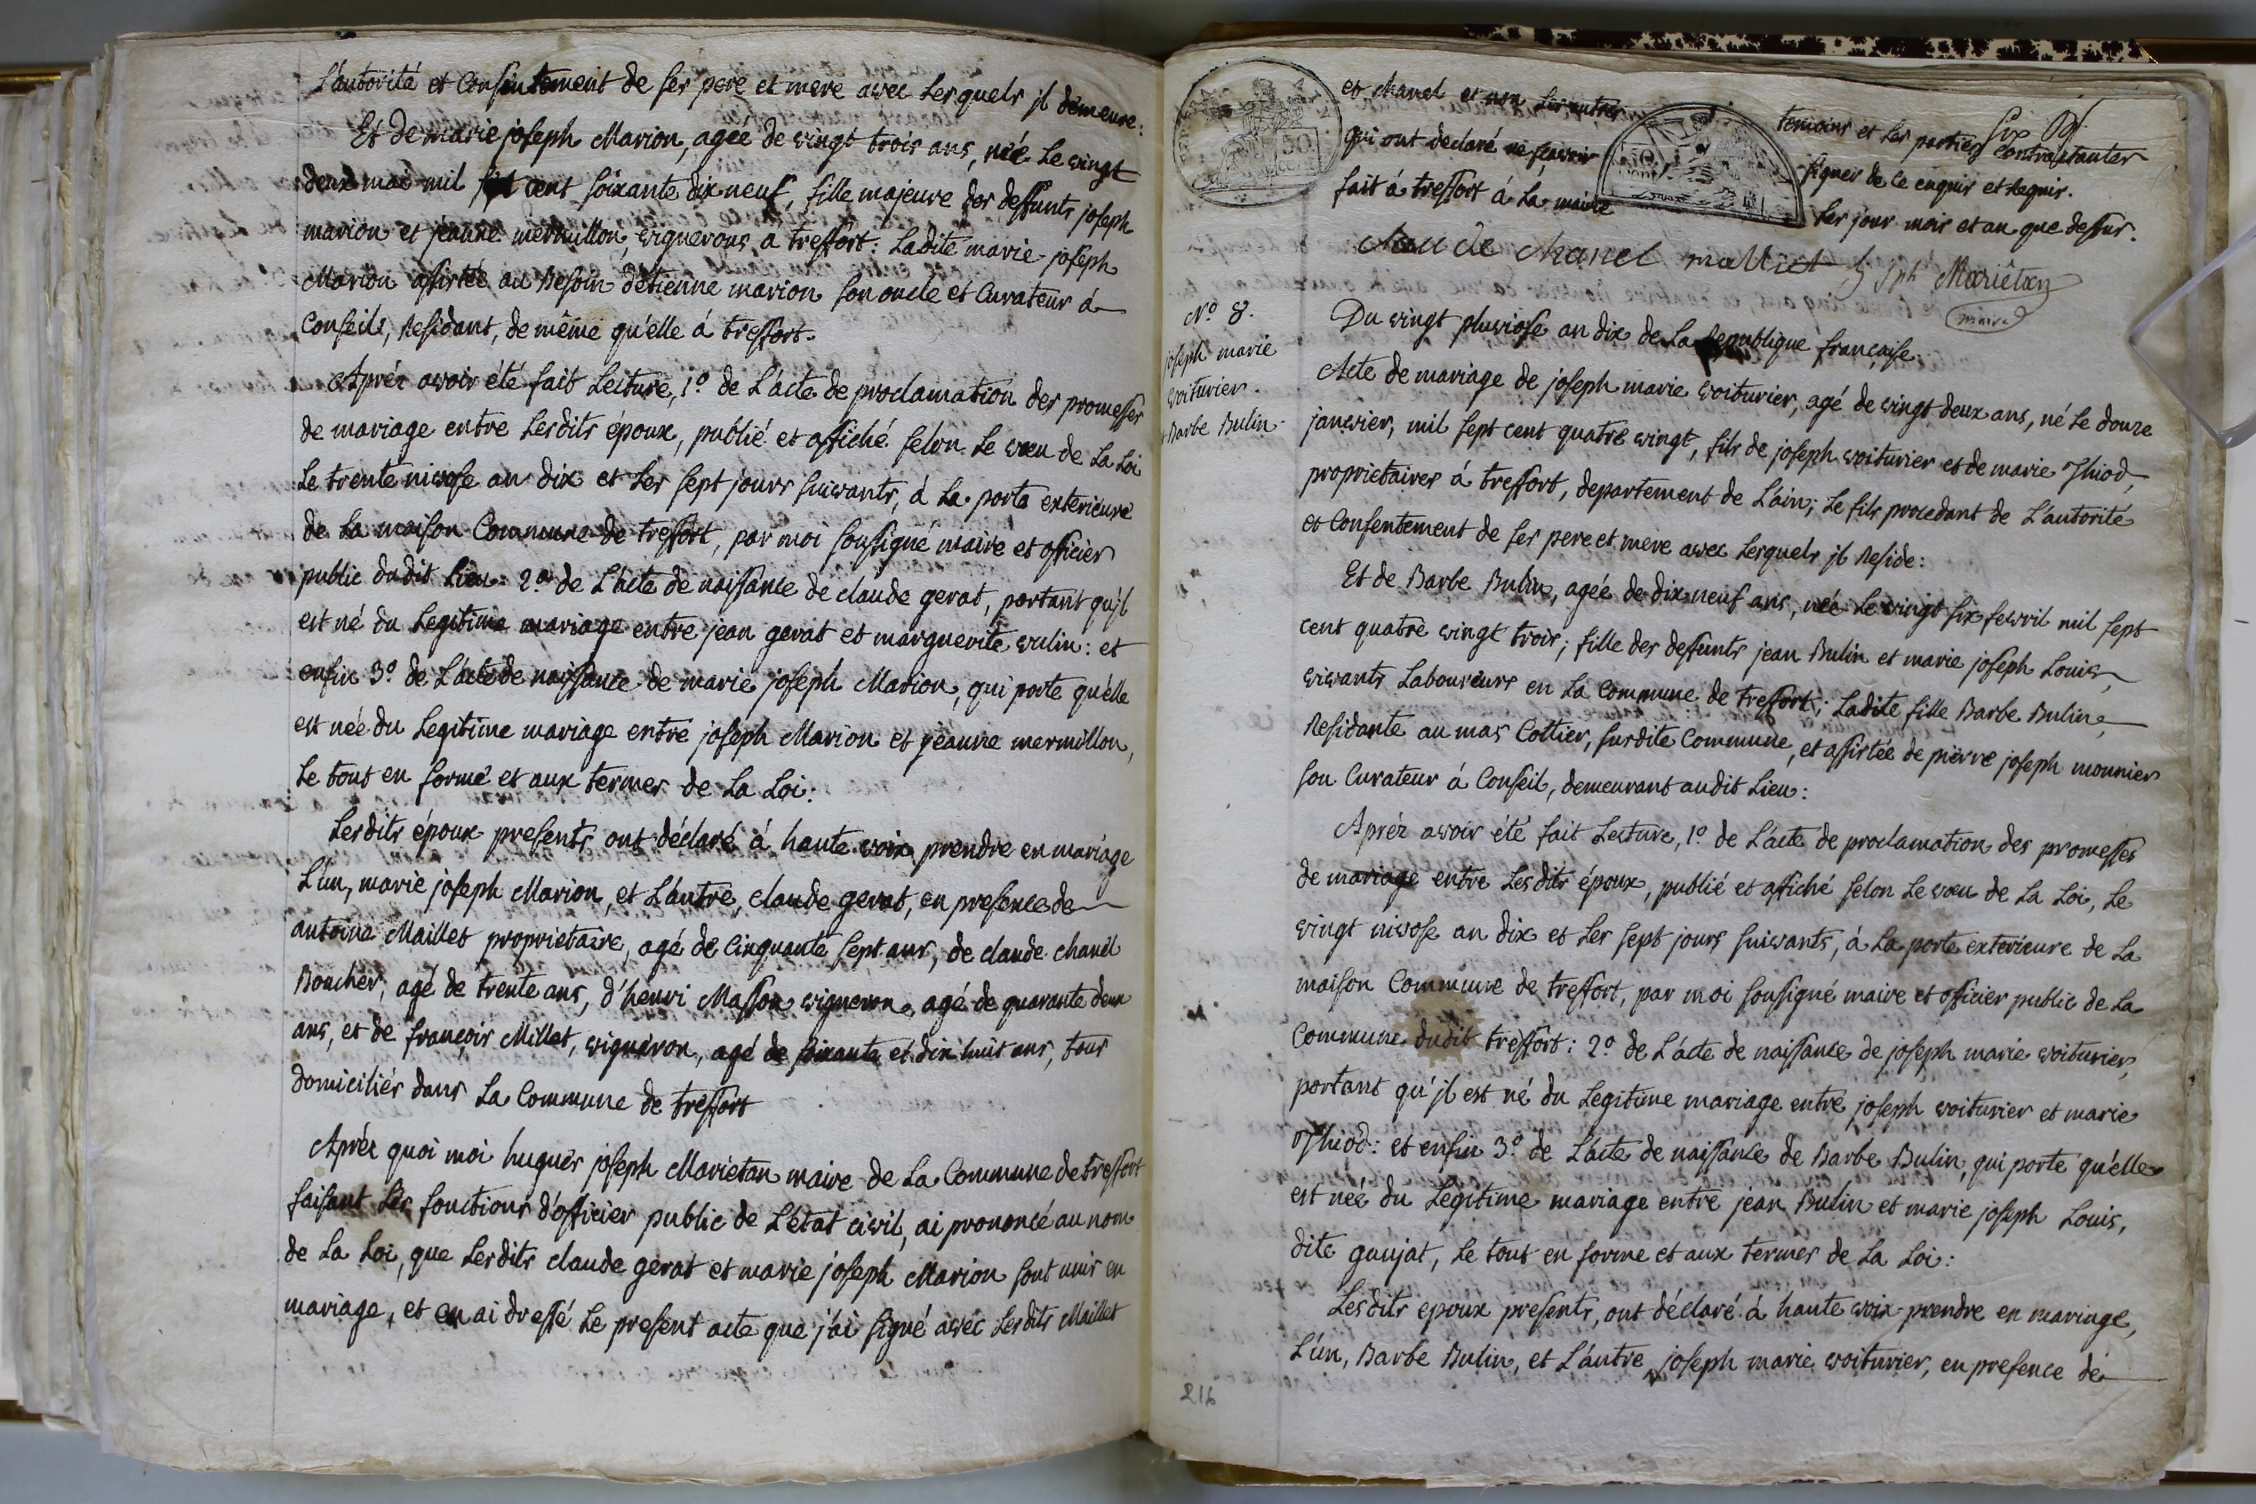 L'autorité et Consentement de ses pere et mere avec Lesquels jl demeure:
Et de marie joseph Marion, agée de vingt trois ans, née Le vingt
deux mai mil sept cent soixante dix neuf, fille majeure des deffunts joseph
marion et jéanne mermillon, vignerons à treffort: Ladite marie joseph
Marion assistée au Besoin d'etienne marion son oncle et Curateur à
Conseils, Residant, de même qu'elle á treffort.
Aprés avoir été fait Lecture, 1º de L'acte de proclamation des promesses
de mariage entre Lesdits époux, publié et affiché selon Le vœu de La Loi
Le trente nivose an dix et Les sept jours suivants, á La porte exterieure
de La maison Commune de treffort, par moi soussigné maire et officier
public dudit Lieu: 2º de L'acte de naissance de claude gerat, portant qu'jl
est né du Legitime mariage entre jean gerat et marguerite vulin: et
enfin 3º de L'acte de naissance de marie joseph Marion, qui porte qu'elle
est née du Legitime mariage entre joseph Marion et jéanne mermillon,
Le tout en forme et aux termes de La Loi:
Lesdits époux presents ont déclaré à haute voix prendre en mariage
L'un, marie joseph Marion, et L'autre, claude gerat, en presence de
antoine Maillet proprietaire, agé de Cinquante sept ans, de claude chanel
Boucher, agé de trente ans, d'henri Masson vigneron, agé de quarante deux
ans, et de françois Millet, vigneron, agé de soixante et dix huit ans, tous
domiciliés dans La Commune de treffort
Aprés quoi moi hugues joseph Marietan maire de La Commune de treffort
faisant Les fonctions d'officier public de L'état civil, ai prononcé au nom
de La Loi, que Lesdits claude gerat et marie joseph Marion sont unis en
mariage, et en ai dressé Le present acte que j'ai signé avec Lesdits Maillet
et chanel et non Les autres temoins et Les parties contractantes
qui ont declaré ne sçavoir signer de ce enquis et Requis.
fait á treffort á La mairie Les jour mois et an que dessus.
claude chanel maillet h jph Mariétan
maire
Nº 8.
joseph marie
voiturier.
et Barbe Bulin.
Du vingt pluviose an dix de La Republique française.
Acte de mariage de joseph marie voiturier, agé de vingt deux ans, né Le douze
janvier, mil sept cent quatre vingt, fils de joseph voiturier et de marie Thiod,
proprietaires á treffort, departement de L'ain; Le fils procedant de L'autorité
et Consentement de ses pere et mere avec Lesquels jl Reside:
Et de Barbe Bulin, agée de dix neuf ans, née Le vingt six fevril mil sept
cent quatre vingt trois; fille des deffunts jean Bulin et marie joseph Louis,
vivants Laboureurs en La Commune de treffort; Ladite fille Barbe Bulin,
Residante au mas Cottier, susdite Commune, et assistée de pierre joseph mounier
son Curateur á Conseil, demeurant audit Lieu:
Aprés avoir été fait Lecture, 1º de L'acte de proclamation des promesses
de mariage entre Lesdits époux, publié et affiché selon Le vœu de La Loi, Le
vingt nivose an dix et Les sept jours suivants, á La porte exterieure de La
maison Commune de treffort, par moi soussigné maire et officier public de La
Commune dudit treffort: 2º de L'acte de naissance de joseph marie voiturier,
portant qu'jl est né du Legitime mariage entre joseph voiturier et marie
Thiod: et enfin 3º de L'acte de naissance de Barbe Bulin, qui porte qu'elle
est née du Legitime mariage entre jean Bulin et marie joseph Louis,
dite goujat, Le tout en forme et aux termes de La Loi:
Lesdits epoux presents, ont déclaré à haute voix prendre en mariage,
L'un, Barbe Bulin, et L'autre joseph marie voiturier, en presence de
216